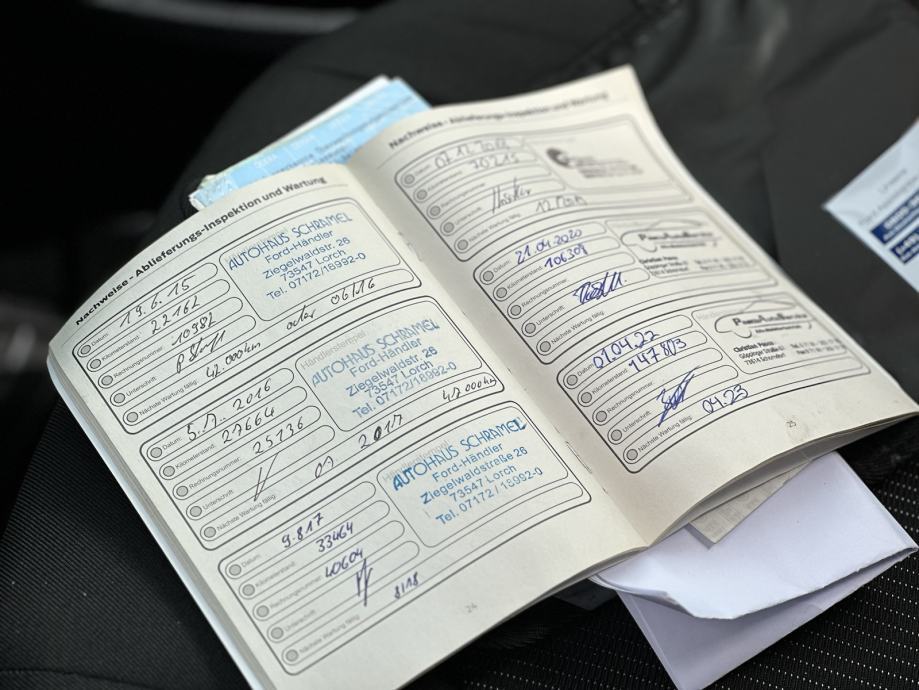 Nachweise - Ablieferungs-Inspektion und Wartung
Datum: 19.6.15
Kilometerstand: 22162
Rechnungsnummer: 10982
Unterschrift:
Nächste Wartung fällig: 42.000km oder 06/16
AUTOHAUS SCHRAMEL
Ford-Händler
Ziegelwaldstr. 26
73547 Lorch
Tel. 07172/18992-0
Datum:
Kilometerstand: 27664
Rechnungsnummer: 25136
Unterschrift:
Nächste Wartung fällig: 2017 47.000km
Händlerstempel
AUTOHAUS SCHRAMEL
Ford-Händler
Ziegelwaldstr. 26
73547 Lorch
Tel. 07172/18992-0
Datum: 9.8.17
Kilometerstand: 33464
Rechnungsnummer: 40604
Unterschrift:
Nächste Wartung fällig: 8/18
AUTOHAUS SCHRAMEL
Ford-Händler
Ziegelwaldstraße 26
73547 Lorch
Tel. 07172 / 18992-0
24
Nachweise - Ablieferungs-Inspektion und Wartung
Datum:
Kilometerstand: 70215
Rechnungsnummer:
Unterschrift:
Nächste Wartung fällig:
Datum: 21.04.2020
Kilometerstand: 106309
Rechnungsnummer:
Unterschrift:
Nächste Wartung fällig:
Christian
Datum: 01.04.22
Kilometerstand: 147803
Rechnungsnummer:
Unterschrift:
Nächste Wartung fällig: 04.23
Christian
73614 Schorndorf
25